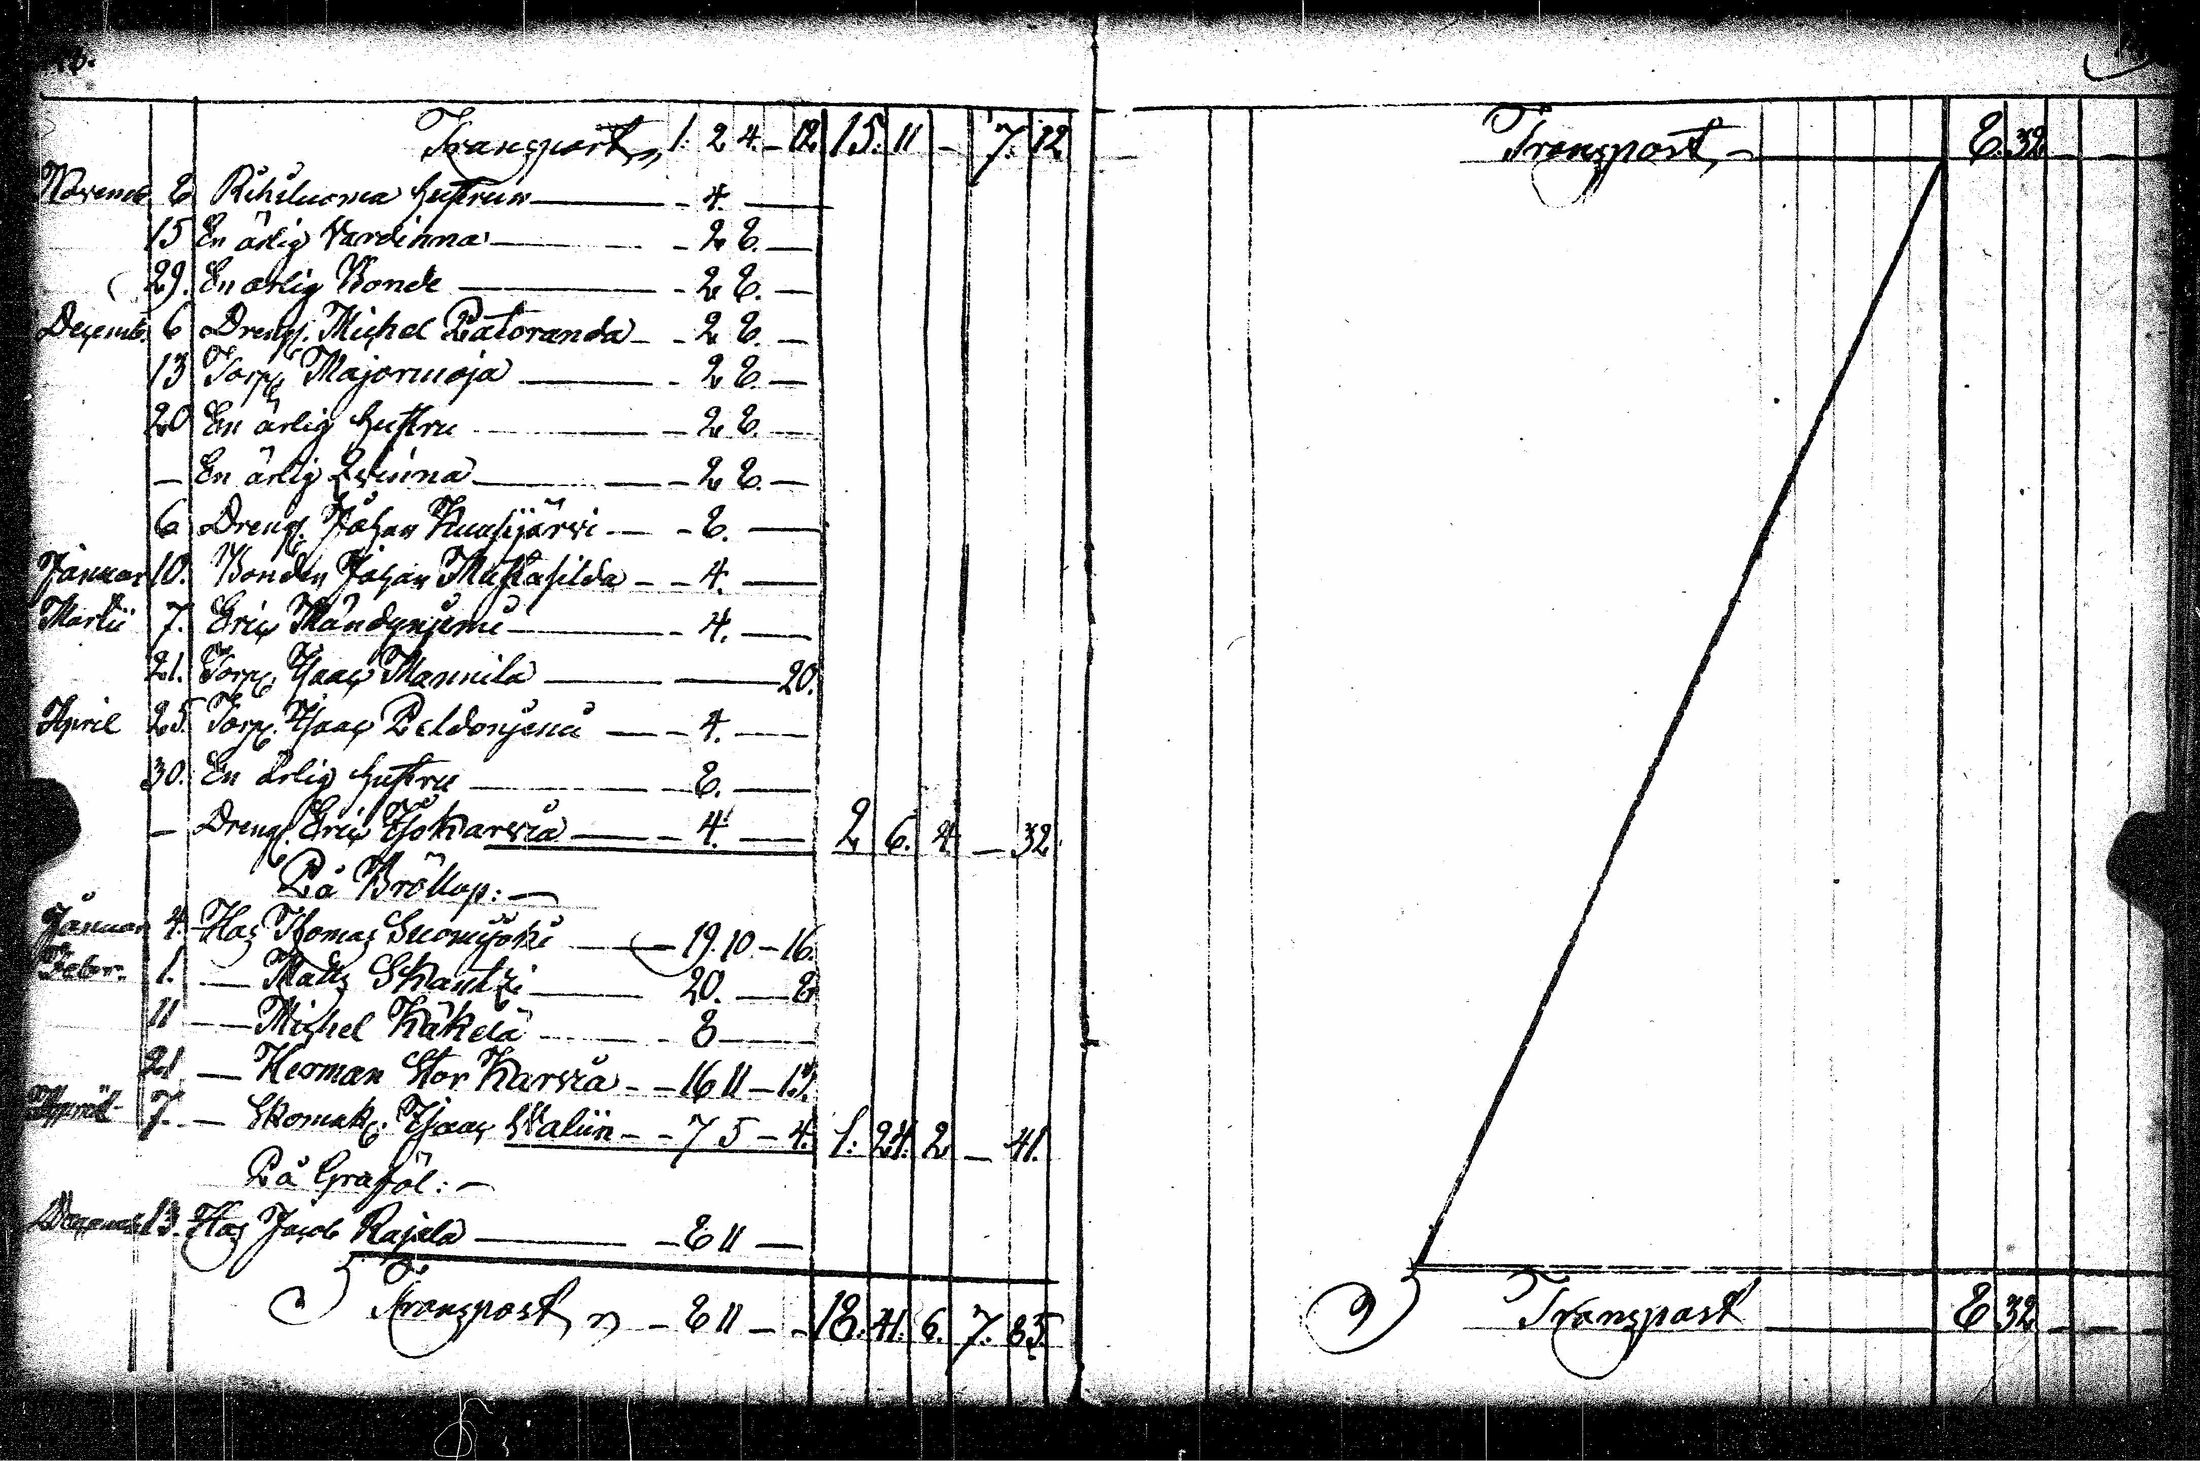 Transport, 1. 24. - 12 15. 11 - 7. 12
Novemb 8 Rihiluoma hustrun - 4. -
15 En ärlig Vardinna - 2 8. -
29. En ärlig Bonde - 2 8. -
Decemb. 6 Drengs. Michel Latoranda - 2 8. -
13 Torp. Majormoja - 2 8. -
20 En ärlig hustru - 2 8. -
- En ärlig Qvinna - 2 8. -
6 Drengs. Johan Kuusijärvi - 8. -
Januar 10. Bonden Johan - 4. -
Martii 7. Eric - 4. -
21. Torp. Isaac Mannila - 20.
April 25. Torp. Isaac Peldoniemi - 4. -
30. En ärlig hustru - 8. -
- Drengs. Eric Isokarvia - 4. - 2 6. 4. - 32
På Bröllop: -
Januar 4. Hos Thomas Suomijoki - 19. 10 - 16.
Febr. 1. - Matts Skantzi - 20. - 8
11 - Michel Käkelä - 8 -
21 - Herman Stor Karvia - 16 11 - 13.
April 7. - Skomak. Isaac Waliin - 7 5 - 4. 1. 24. 2 - 41.
På Graföl: -
Decemb 13. Hos Jacob Rajala - 8 11 -
Transport, - 8 11 - - 18. 41. 6. 7. 85.
Transport, - 8. 32 - -
Transport - 8 32 - -